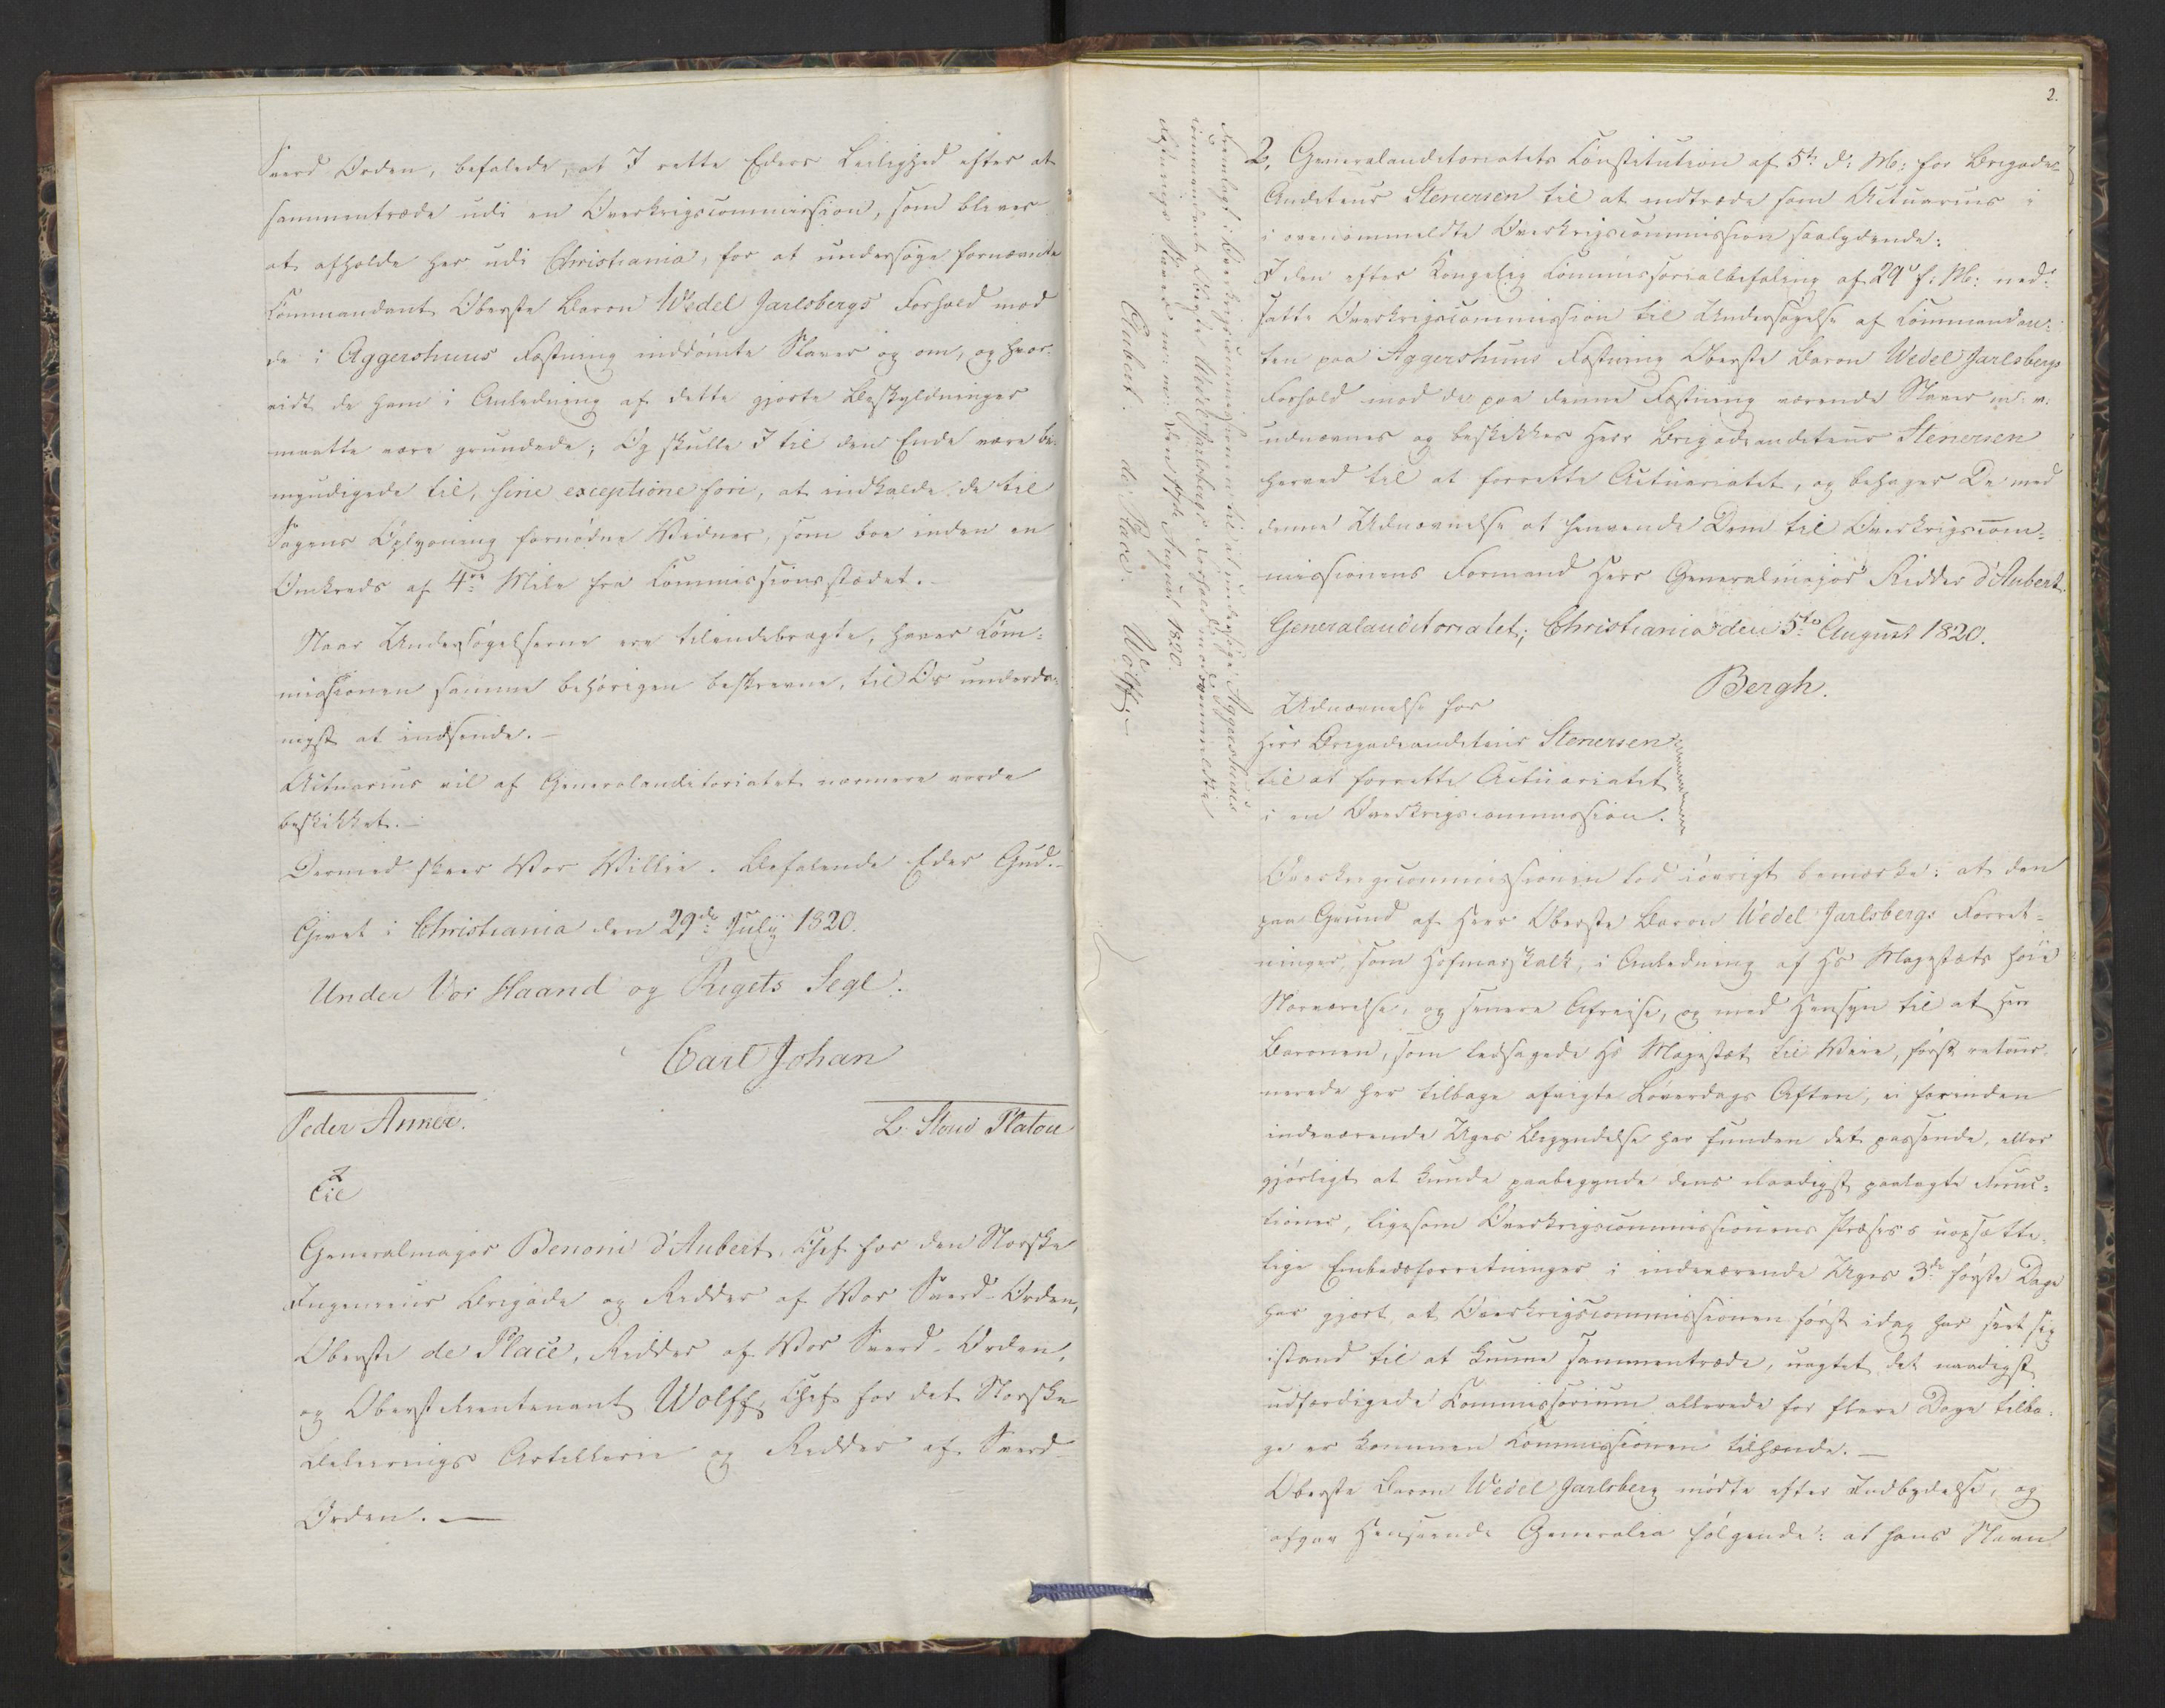 Sværd Orden, befalede, at I rette Eders Leilighed efter at
sammentræde udi en Overkrigscommission, som bliver
at afholde her udi Christiania, for at undersøge fornævnte
Commandant Oberste Baron Wedel Jarlsbergs Forhold mod
de i Aggershuus Fæstning inddømte Slaver og om, og hvor-
vidt de ham i Anledning af dette gjorte Beskyldninger
maatte være grundede; Og skulle I til den Ende være be-
myndigede til, sine exceptione fori, at indkalde de til
Sagens Oplysning fornødne Vidner, som boe inden en
Omkreds af 4re Mile fra Commissionsstædet.-
Naar Undersøgelserne ere tilendebragte, haver Com-
missionen samme behørigen beskrevne, til Os underda-
nigst at indsende.-
Actuarius vil af Generalauditoriatet nærmere vorde
beskikket.-
Dermed skeer Vor Villie. Befalende Eder Gud.-
Givet i Christiania den 29de July 1820.
Under Vor Haand og Rigets Segl.
Carl Johan
Peder Anker.
L. Stoud Platou
Til
Generalmajor Benoni d'Aubert, Chef for den Norske
Ingenieur Brigade og Ridder af Vor Sværd-Orden,
Oberste de Place, Ridder af Vor Sværd-Orden,
og Oberstlieutenant Wolff, Chef for det Norske
Beleirings Artillerie og Ridder af Sværd-
Orden.-
2.
2, Generalauditoriatets Constitution af 5te d: M: for Brigade-
Auditeur Stenersen til at indtræde som Actuarius i
i ovenommeldte Overkrigscommission saalydende:
I den efter Kongelig Commissorialbefaling af 29de f: M: ned-
satte Overkrigscommission til Undersøgelse af Commandan-
ten paa Aggershuus Fæstning Oberste Baron Wedel Jarlsbergs
Forhold mod de paa denne Fæstning værende Slaver m: v:
udnævnes og beskikkes Herr Brigadeauditeur Stenersen
herved til at forrette Actuariatet, og behager De med
denne Udnævnelse at henvende Dem til Overkrigscom-
missionens Formand Herr Generalmajor Ridder d'Aubert.
Generalauditoriatet, Christiania den 5te August 1820.
Bergh.
Udnævnelse for
Herr Brigadeauditeur Stenersen
til at forrette Actuariatet
i en Overkrigscommission.
Overkrigscommissionen lod iøvrigt bemærke: at den
paa Grund af Herr Oberste Baron Wedel Jarlsbergs Forret-
ninger som Hofmarskalk, i Anledning af Hs Majestæts høie
Nærværelse, og senere Afreise, og med Hensyn til at Herr
Baronen, som ledsagede Hs Majestæt til Veie, først retour-
nerede her tilbage afvigte Løverdags Aften, ei forinden
indeværende Uges Begyndelse har funden det passende, eller
gjørligt at kunde paabegynde dens naadigst paalagte Func-
tioner, ligesom Overkrigscommissionens Præses's uopsætte-
lige Embedsforretninger i indeværende Uges 3de første Dage
har gjort, at Overkrigscommissionen først idag har seet sig
istand til at kunne sammentræde, uagtet det naadigst
udfærdigede Commissorium allerede for flere Dage tilba-
ge er kommen Commissionen tilhænde.-
Oberste Baron Wedel Jarlsberg mødte efter Indbydelse, og
afgav Henseende Generalia følgende: at hans Navn
Fremlagt i Overkrigscommissionen til at undersøge Aggershuus
Commandant Oberste Wedel Jarlsbergs Forhold mod ommeldte
Fæstnings Slaver m: m: den August 1820.
Aubert. de Place. Wolff.